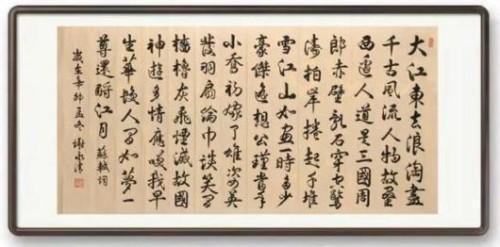 大江東去浪淘盡
千古風流人物故壘
西邊人道是三國周
郎赤壁亂石穿空驚
濤拍岸捲起千堆
雪江山如畫一時多少
豪傑遙想公瑾當年
小喬初嫁了雄姿英
發羽扇綸巾談笑間
檣櫓灰飛煙滅故國
神遊多情應笑我早
生華髮人間如夢一
尊還酹江月 蘇軾詞
歲在辛卯孟冬